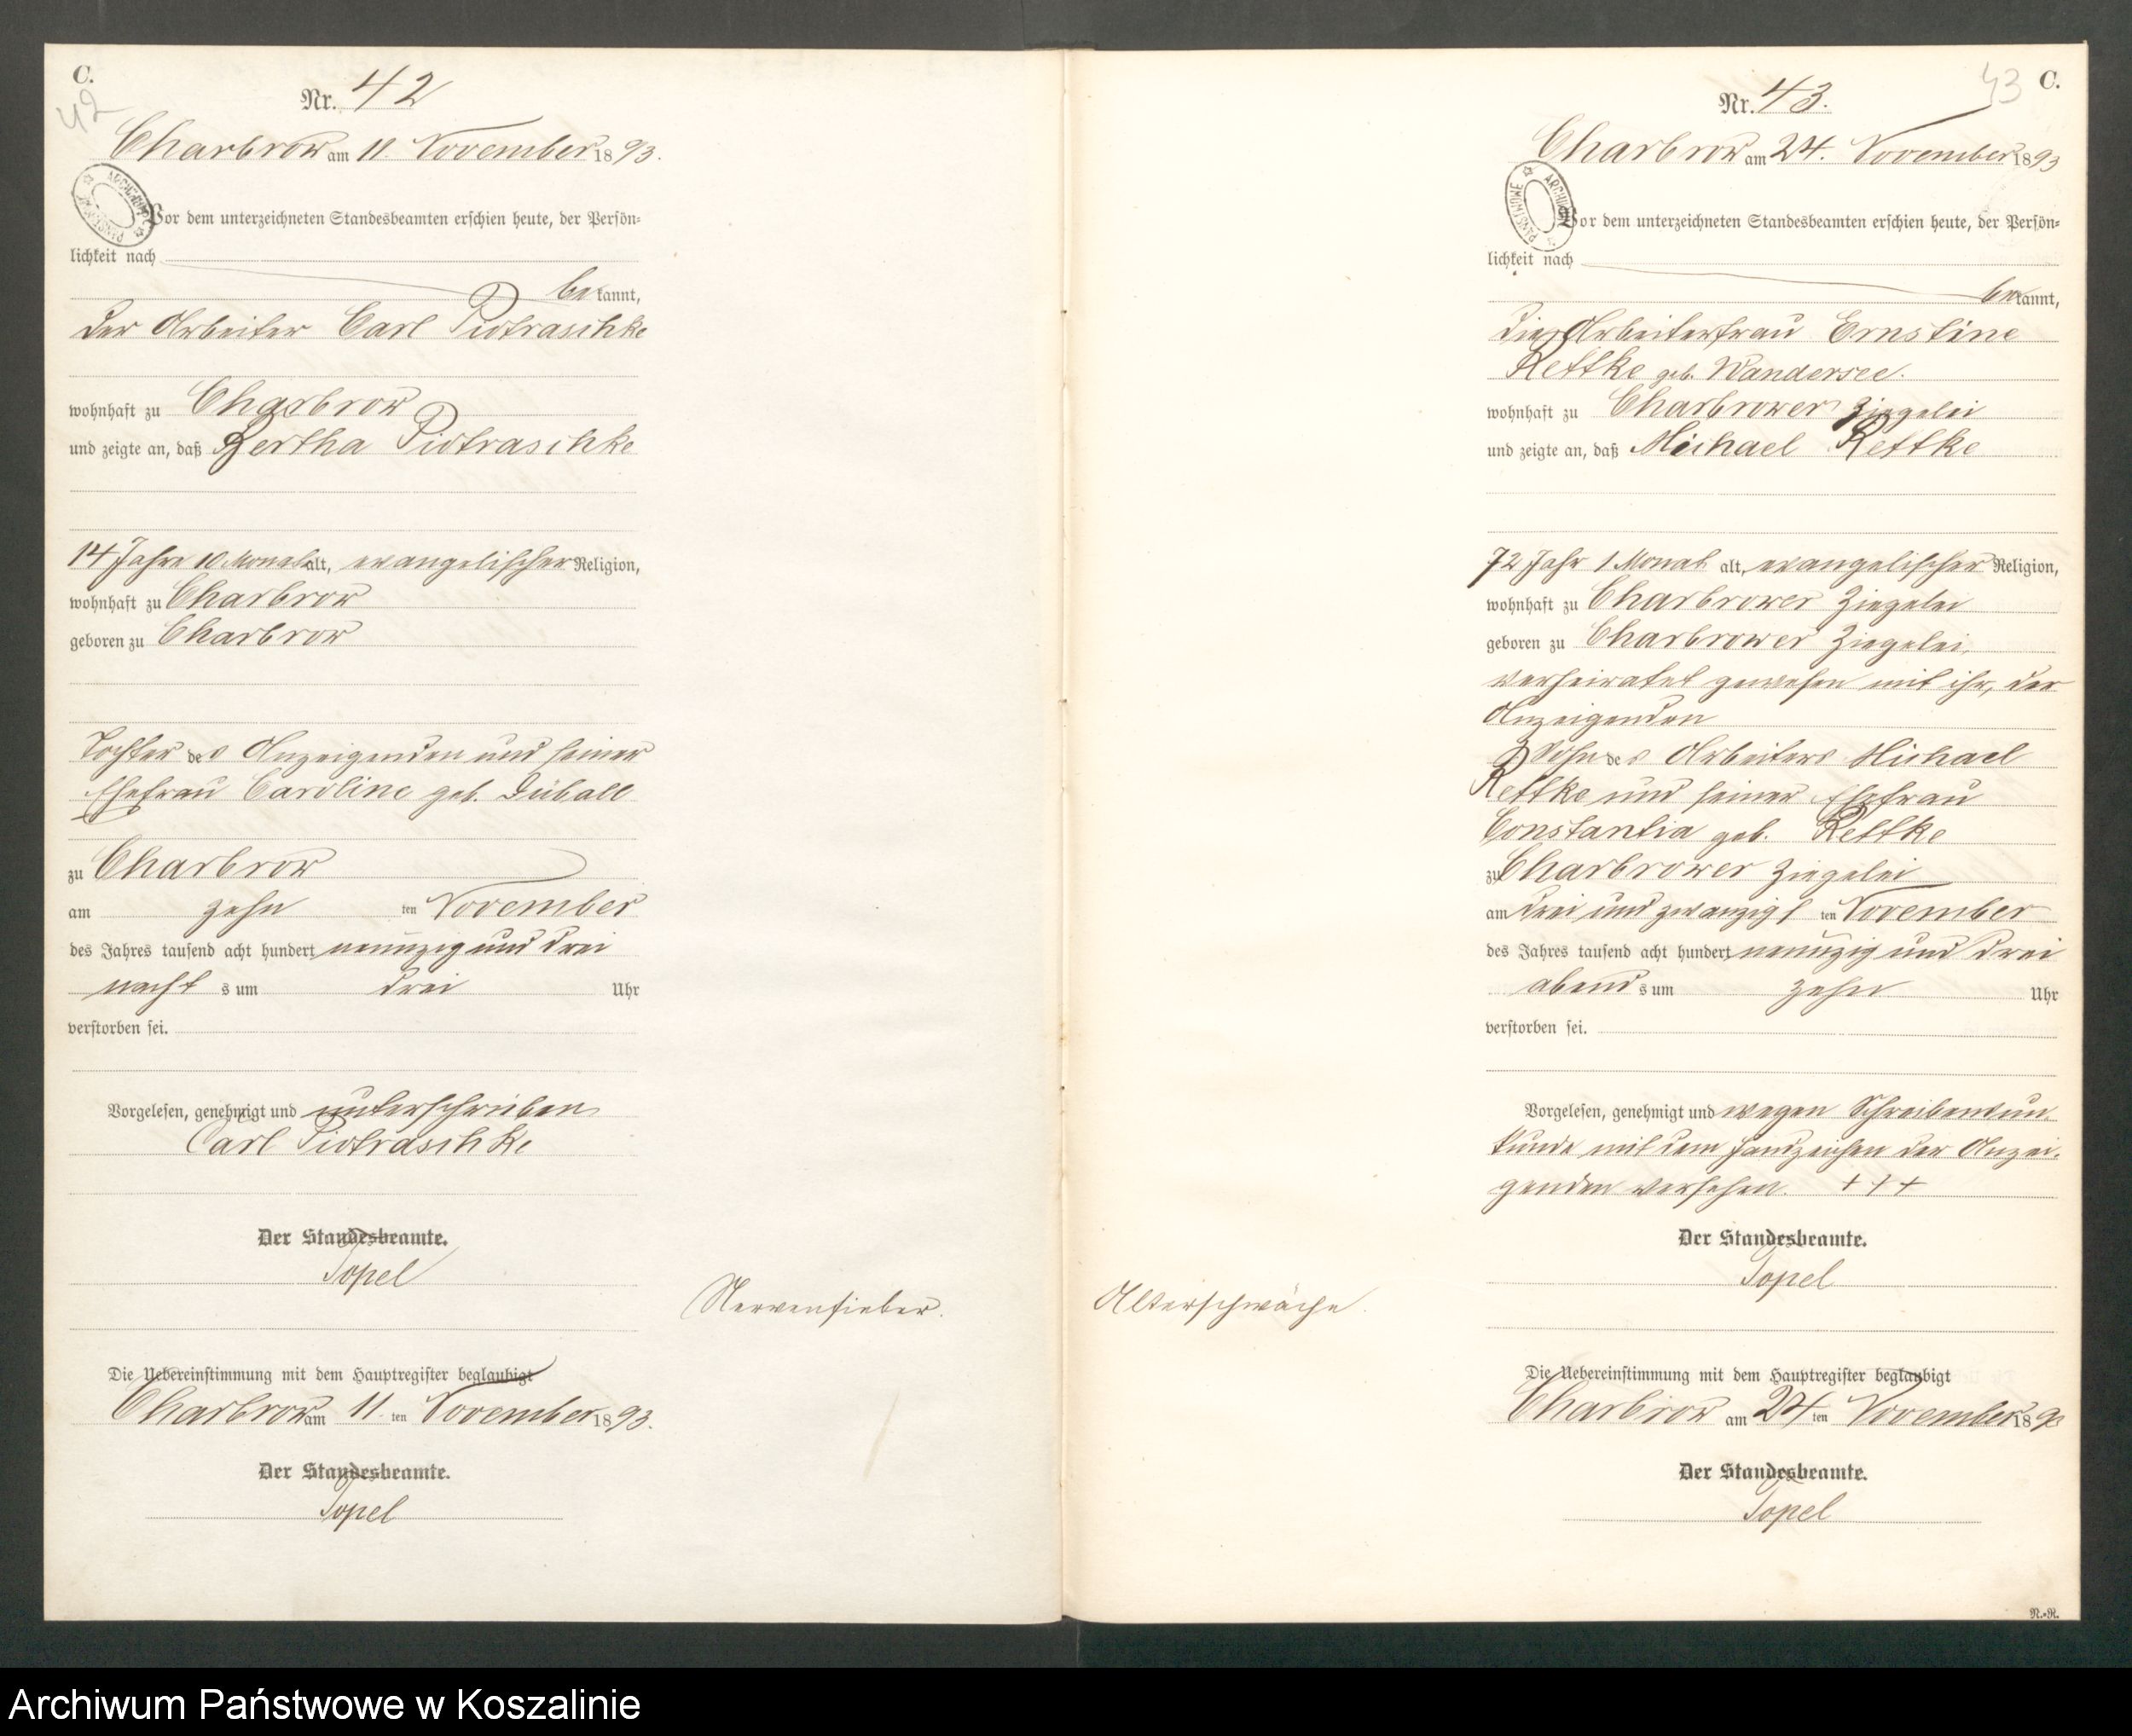 C.
42
Nr. 42
Charbrow am 11. November 1893.
Vor dem unterzeichneten Standesbeamten erschien heute, der Persön=
lichkeit nach
bekannt,
der Arbeiter Carl Piotraschke
wohnhaft zu Charbrow
und zeigte an, daß Bertha Piotraschke
14 Jahre 10 Monate alt, evangelischer Religion,
wohnhaft zu Charbrow
geboren zu Charbrow
Tochter des Anzeigenden und seiner
Ehefrau Caroline geb. Düball
zu Charbrow
am zehn ten November
des Jahres tausend acht hundert neunzig und drei
nacht s um drei Uhr
verstorben sei.
Vorgelesen, genehmigt und unterschrieben
Carl Piotraschke
Der Standesbeamte.
Topel
Nervenfieber.
Die Uebereinstimmung mit dem Hauptregister beglaubigt
Charbrow am 11 ten November 1893.
Der Standesbeamte.
Topel
43
C.
Nr. 43.
Charbrow am 24. November 1893
Vor dem unterzeichneten Standesbeamten erschien heute, der Persön=
lichkeit nach
bekannt,
die Arbeiterfrau Ernstine
Rettke geb. Wandersee.
wohnhaft zu Charbrower Ziegelei
und zeigte an, daß Michael Rettke
72 Jahr 1 Monat alt, evangelischer Religion,
wohnhaft zu Charbrower Ziegelei
geboren zu Charbrower Ziegelei,
verheiratet gewesen mit ihr, der
Anzeigenden
Sohn des Arbeiters Michael
Rettke und seiner Ehefrau
Constantia geb. Rettke
zu Charbrower Ziegelei
am drei und zwanzigs ten November
des Jahres tausend acht hundert neunzig und drei
abend s um zehn Uhr
verstorben sei.
Vorgelesen, genehmigt und wegen Schreibensun-
kunde mit dem Handzeichen der Anzei-
genden versehen. +++
Der Standesbeamte.
Topel
Alterschwäche.
Die Uebereinstimmung mit dem Hauptregister beglaubigt
Charbrow am 24 ten November 1893
Der Standesbeamte.
Topel
N.=R.
Archiwum Państwowe w Koszalinie